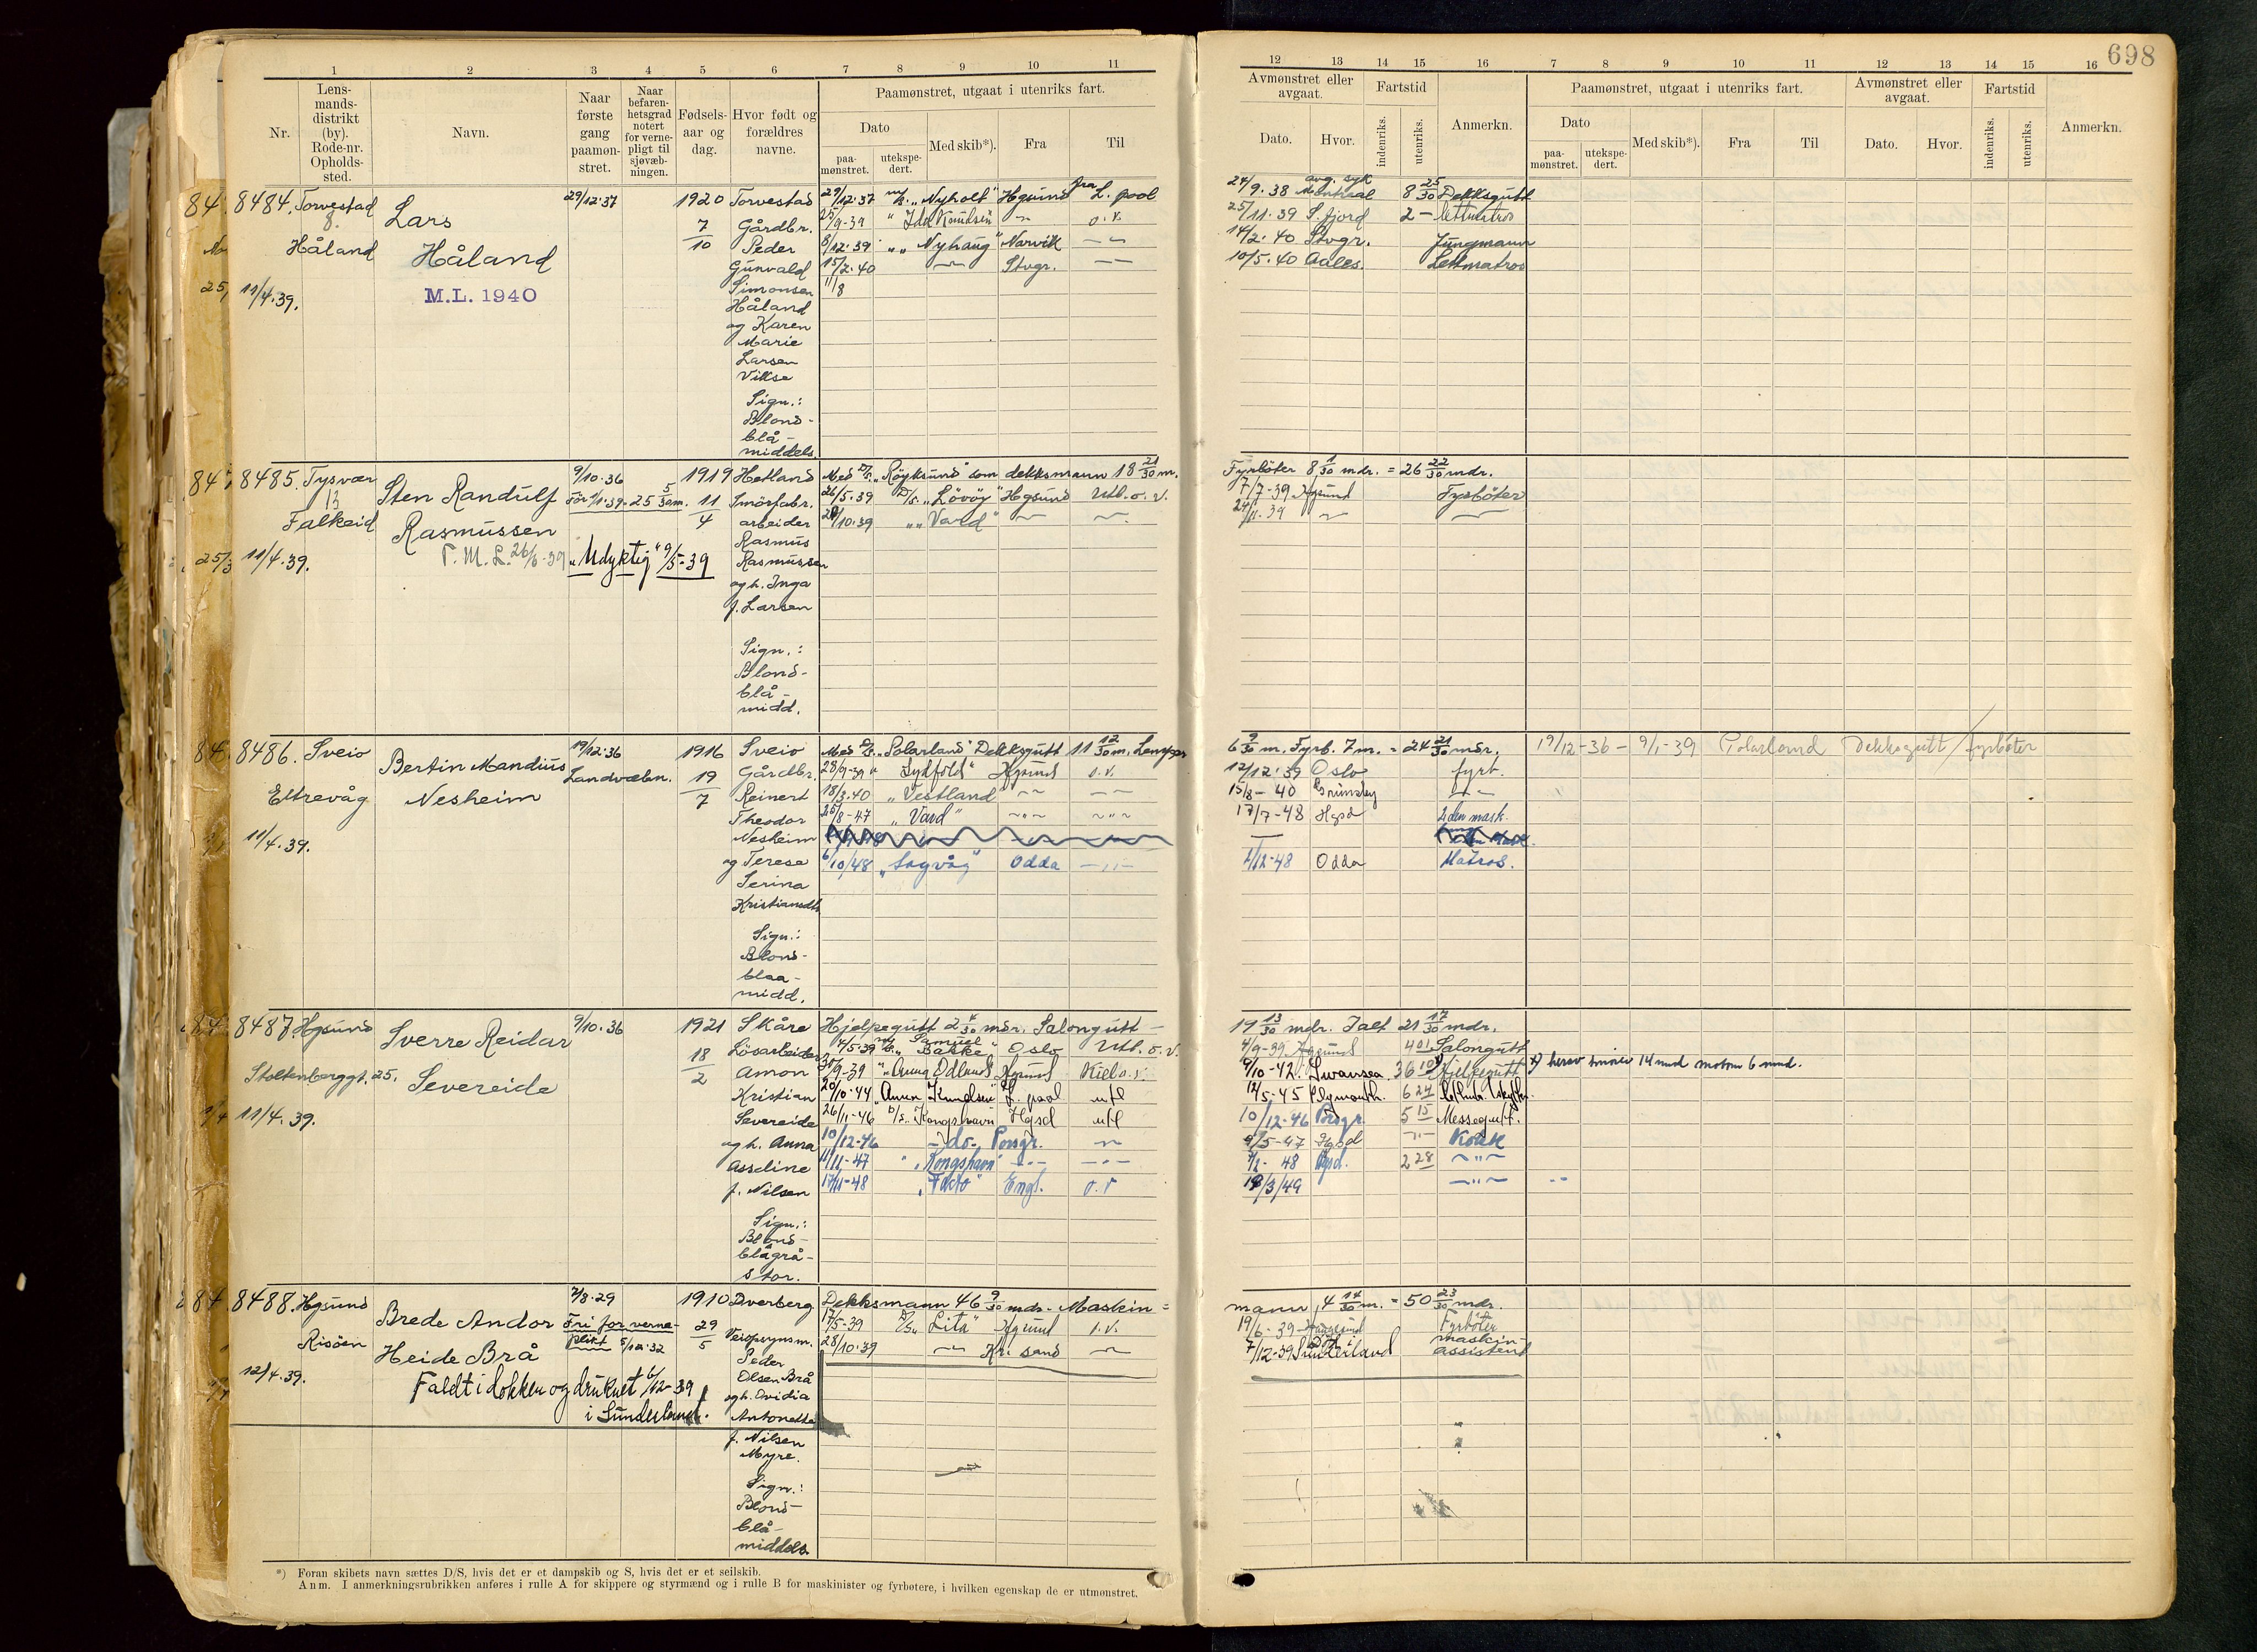 698
1 2 3 4 5 6 7 8 9 10 11
12 13 14 15 16 7 8 9 10 11 12 13 14 15 16
Nr.
Lens-
mands-
distrikt
(by).
Rode-nr.
Opholds-
sted.
Navn.
Naar
første
gang
paamøn-
stret.
Naar
befaren-
hetsgrad
notert
for verne-
pligt til
sjøvæb-
ningen.
Fødsels-
aar og
dag.
Hvor født og
forældres
navne.
Paamønstret, utgaat i utenriks fart.
Dato
paa-
mønstret.
utekspe-
dert.
Med skib*).
Fra
Til
Avmønstret eller
avgaat.
Dato.
Hvor.
Fartstid
indenriks.
utenriks.
Anmerkn.
Paamønstret, utgaat i utenriks fart.
Dato
paa-
mønstret.
utekspe-
dert.
Med skib*).
Fra
Til
Avmønstret eller
avgaat.
Dato.
Hvor.
Fartstid
indenriks.
utenriks.
Anmerkn.
8484. Torvestad
8.
Håland
11/4.39.
Lars
Håland
M.L. 1940
29/12.37
1920
7
10
Torvestad
Gårdbr.
Peder
Gunvald
Simonsen
Håland
og Karen
Marie
Larsen
Vikse
Sign.:
Blond-
blå-
middels.
29/12.37 m/k. "Nyholt" Hgsund fra L. pool
25/9-39 " Ida Knudsen " o.v.
8/12.39 " "Nyhaug" Narvik
15/2.40 Stvgr.
11/8
24/9.38 avg. syk Montreal 8 25/30 Dekksgutt
25/11.39 S. fjord 2 - lettmatros
14/2.40 Stvgr. Jungmann
10/5.40 Aales. Lettmatros
8485. Tysvær
13
Falkeid
11/4.39.
Sten Randulf
Rasmussen
T. M. L. 26/6-39
9/10.36
Før 1/1.39-25 5/30 m.
"Udyktig" 9/5-39
1919
11
4
Hetland
Smörfabr.
arbeider
Rasmus
Rasmussen
og h. Inga
f. Larsen
Sign.:
Blond-
blå-
midd.
Med D/S. "Röyksund" som dekksmann 18 21/30 m.
26/5.39 D/S. "Lövöy" Hgsund Utl. o. v.
28/10.39 " "Vard"
Fyrböter 8 1/30 mdr. = 26 22/30 mdr.
7/7-39 Hgsund Fyrböter
24/11.39
8486. Sveio
Eltrevåg
11/4.39.
Bertin Mandius
Nesheim
19/12.36
Landvæbn.
1916
19
7
Sveio
Gårdbr.
Reinert
Theodor
Nesheim
og Terese
Serina
Kristiansdtr
Sign.:
Blond-
blaa-
midd.
Med D/S. "Polarland" Dekksgutt 11 12/30 m. Lemper
28/9-39 " Sydfold" Hgsund o.v.
18/3.40 "Vestland"
25/8-47 "Vard"
6/10/48 "Sagvåg" Odda
6 9/30 m. Fyrb. 7 m. = 24 21/30 mdr.
12/12.39 Oslo fyrb.
15/8-40 Grimsby
17/7-48 Hgsd 2den mask.
2/12-48 Odda Matros.
19/12-36 - 9/1-39 Polarland Dekksgutt / fyrböter
8487. Hgsund
Stoltenberggt. 25.
11/4.39.
Sverre Reidar
Severeide
9/10.36
1921
18
2
Skåre
Lösarbeider
Amon
Kristian
Severeide
og h. Anna
Asseline
f. Nilsen
Sign.:
Blond-
blågrå-
stor.
Hjelpegutt 2 4/30 mdr. Salongutt -
4/5.39 m/k. "Samuel Bakke" Oslo Utl. o. v.
30/9-39 " "Anna Odland" Hgsund Kiel o. v.
20/10-44 "Anna Knudsen" L. pool utl
26/11-46 D/S. "Kongshavn" Hgsd utl
10/12-46 - do - Porsgr.
11/11-47 " "Kongshavn"
17/11-48 "Fakto" Engl. o.v
19 13/30 mdr. Ialt 21 17/30 mdr.
4/9-39 Hgsund 4 01 Salongutt
9/10-42 Swansea 36 10 Hjelpegutt
x) herav trivier 14 mnd motorm 6 mnd.
12/5-45 Plymouth. 6 24
10/12-46 Porsgr. 5 15 Messegutt.
9/5-47 Hgsd Kokk
2/2-48 Hgsd. 2 28
19/3/49
8488. Hgsund
Risöen
12/4.39.
Brede Andor
Heide Brå
Faldt i dokken og druknet 6/12-39
i Sunderland.
2/8.29
Fri for verne-
plikt 5/10.32
1910
29
5
Dverberg
Veiopsynsm.
Peder
Olsen Brå
og h. Ovidia
Antonette
f. Nilsen
Myre.
Sign.:
Blond-
blå-
middels.
Dekksmann 46 9/30 mdr. Maskin =
17/5-39 D/S. "Lita" Hgsund o.v.
28/10.39 Kr. sand
mann, 4 14/30 m. = 50 23/30 mdr.
19/6-39 Haugesund Fyrböter
7/12-39 Sunderland maskin-
assistent
*) Foran skibets navn sættes D/S, hvis det er et dampskib og S, hvis det er et seilskib.
Anm. I anmerkningsrubrikken anføres i rulle A for skippere og styrmænd og i rulle B for maskinister og fyrbøtere, i hvilken egenskap de er utmønstret.